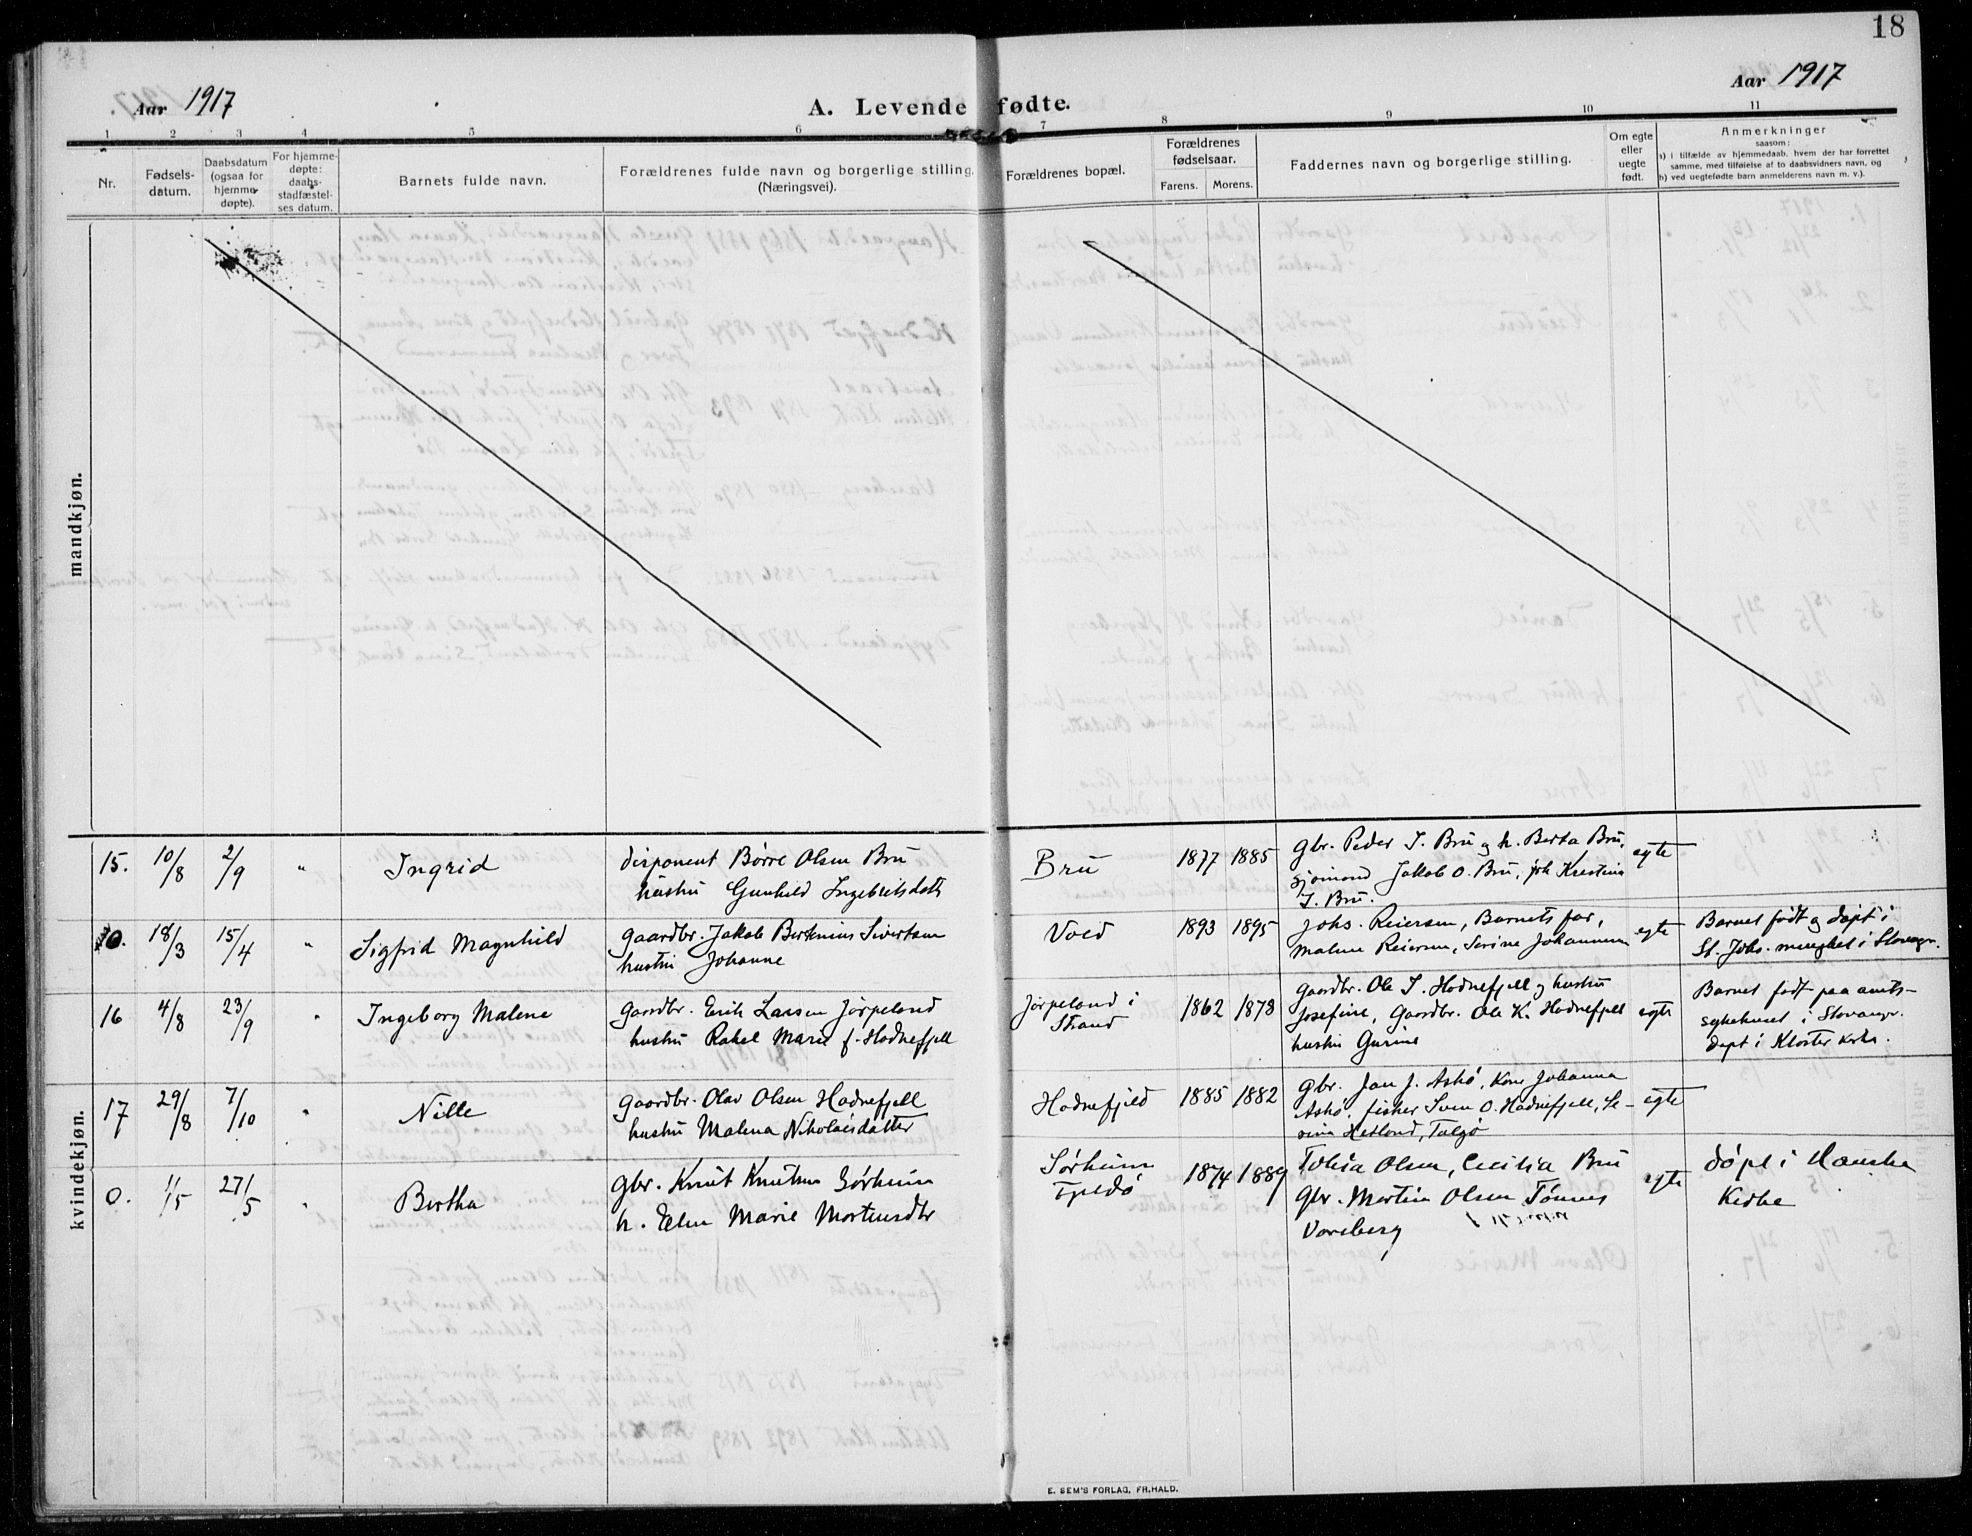 18
Aar 1917
A. Levende fødte.
Aar 1917
1 2 3 4 5 6 7 8 9 10 11
Nr.
Fødsels-
datum.
Daabsdatum
(ogsaa for
hjemme-
døpte).
For hjemme-
døpte:
daabs-
stadfæstel-
ses datum.
Barnets fulde navn.
Forældrenes fulde navn og borgerlige stilling.
(Næringsvei).
Forældrenes bopæl.
Forældrenes
fødselsaar.
Farens. Morens.
Faddernes navn og borgerlige stilling.
Om egte
eller
uegte
født.
Anmerkninger
saasom:
a) i tilfælde av hjemmedaab, hvem der har forrettet
samme, med tilføielse af to daabsvidners navn, og
b) ved uegtefødte barn anmelderens navn m. v.).
mandkjøn.
kvindekjøn.
15. 10/8 2/9 " Ingrid
disponent Børre Olsen Bru
hustru Gunhild Ingebritsdatt
Bru 1877 1885
gbr. Peder I. Bru og h. Berta Bru,
sjømand Jakob O. Bru, frk Kristina
I. Bru.
egte
0. 18/3 15/4 " Sigfrid Magnhild
gaardbr. Jakob Bertinius Sivertsen
hustru Johanne
Voed 1893 1895
Johs. Reiersen, Barnets far,
Malene Reiersen, Serine Johannesen
egte
Barnet født og døpt i
St. Johs. menighet i Stavanger.
16 4/8 23/9 " Ingeborg Malene
Gaardbr. Erik Larsen Jørpeland
hustru Rakel Marie f. Hodnefjell
Jørpeland i
Strand
1862 1878
Gaardbr. Ole I. Hodnefjell og hustru
Josefine, Gaardbr. Ole K. Hodnefjell
hustru Gurine
egte
Barnet født paa amts-
sykehuset i Stavanger.
døpt i Kloster kirke.
17 29/8 7/10 " Nille
Gaardbr. Olav Olsen Hodnefjell
hustru Malena Nikolaisdatter
Hodnefjeld 1885 1882
gbr. Jan J. Askø, Kone Johanna
Askø. fisker Sven O. Hodnefjell, Se-
sina Hetland, Talgø
egte
0. 11/5 27/5 " Bertha
gbr. Knut Knutsen Sørheim
h. Elen Marie Mortensdtr
Sørheim
Fjeldø
1874 1889
Tobia Olsen, Cecilia Bru
Gbr. Martin Olsen Tønnes
Vareberg
egte
døpt i Hauske
Kirke
E. SEM'S FORLAG, FR.HALD.